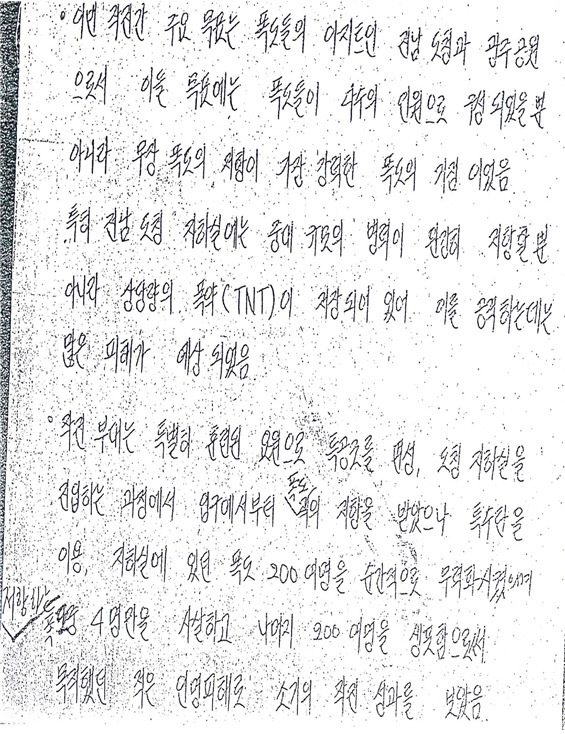 ◦ 이번 작전간 주요 목표는 폭도들의 아지트인 전남 도청과 광주공원
으로서 이들 목표에는 폭도들이 다수의 인원으로 편성 되었을 뿐
아니라 무장 폭도의 저항이 가장 강력한 폭도의 거점 이었음
특히 전남 도청 지하실에는 중대 규모의 병력이 완강히 저항할 뿐
아니라 상당량의 폭약(TNT)이 저장되어 있어 이를 공격하는데는
많은 피해가 예상 되었음
◦ 작전 부대는 특별히 훈련된 요원으로 특공조를 편성, 도청 지하실을
폭도
진입하는 과정에서 입구에서부터 적의 저항을 받았으나 특수탄을
이용, 지하실에 있던 폭도 200여명을 순간적으로 무력화시켰으며
저항하는
폭도 4명만을 사살하고 나머지 200여명을 생포함으로써
목적했던 적은 인명피해로 소기의 작전 성과를 보았음